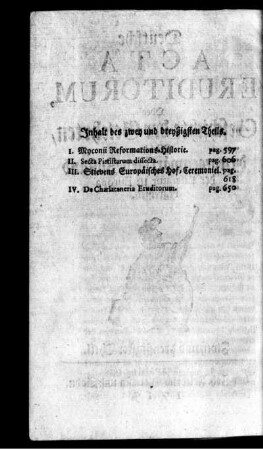 Inhalt des zwey und dreyßigsten Theils.
I. Myconii Reformations-Historie. pag. 597
II. Secta Pietisturum dissecta. pag. 606
III. Stievens Europäisches Hof-Ceremoniel. pag. 618
IV. De Charlataneria Eruditorum. pag. 650